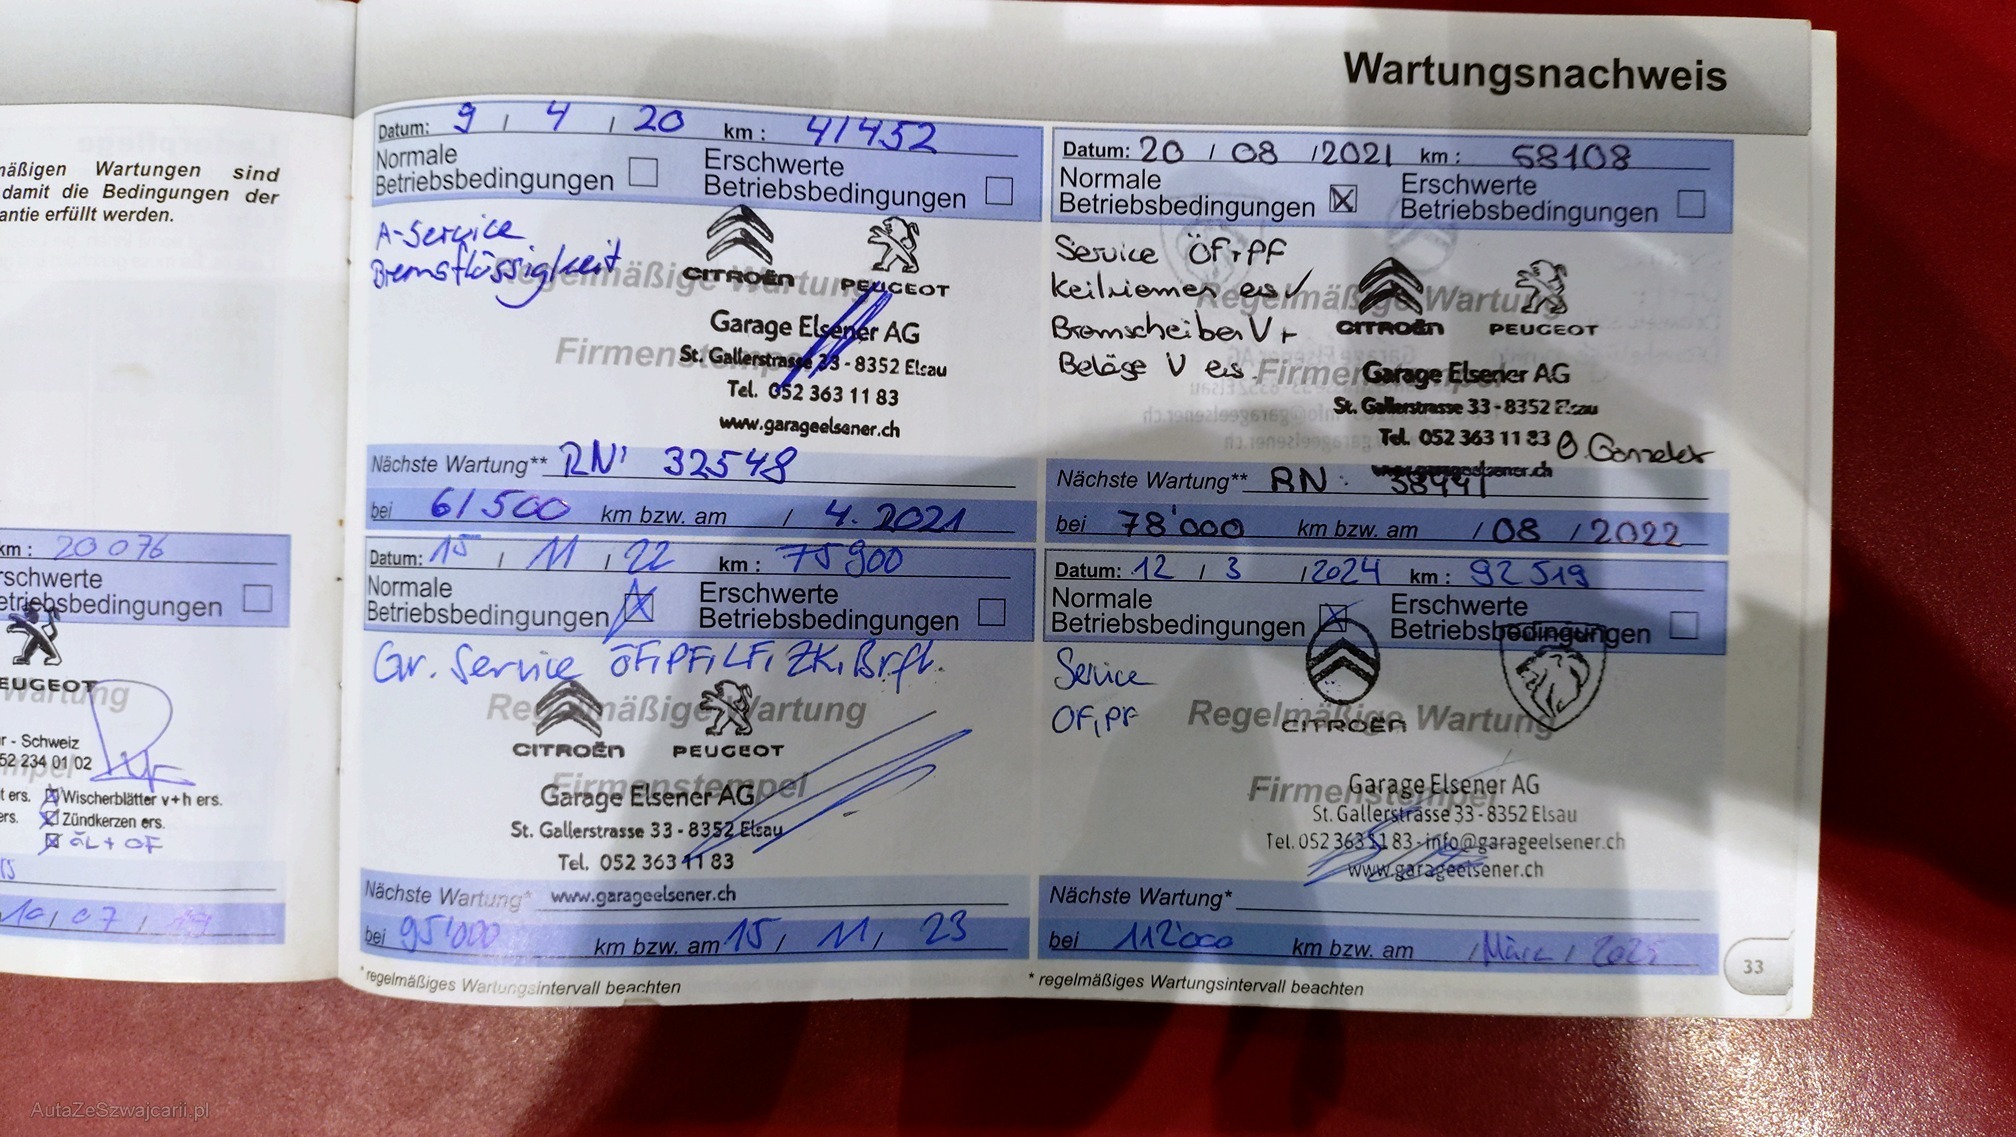 Wartungsnachweis
mäßigen Wartungen sind
damit die Bedingungen der
antie erfüllt werden.
km : 20 076
rschwerte
etriebsbedingungen
EUGEOT
Wartung
r - Schweiz
52 234 01 02
t ers. Wischerblätter v+h ers.
ers. Zündkerzen ers.
ÖL + OF
10 / 07 / 19
Datum: 9 / 4 / 20 km : 41452
Normale
Betriebsbedingungen
Erschwerte
Betriebsbedingungen
A-Service
Bremsflüssigkeit
Regelmäßige Wartung
Firmenstempel
CITROËN PEUGEOT
Garage Elsener AG
St. Gallerstrasse 33 - 8352 Elsau
Tel. 052 363 11 83
www.garageelsener.ch
Nächste Wartung** RN' 32548
bei 61500 km bzw. am / 4. 2021
Datum: 20 / 08 / 2021 km : 58108
Normale
Betriebsbedingungen
Erschwerte
Betriebsbedingungen
Service ÖF+PF
Keilriemen ers ✓
Bremscheiben V +
Beläge V ers.
Regelmäßige Wartung
Firmenstempel
CITROËN PEUGEOT
Garage Elsener AG
St. Gallerstrasse 33 - 8352 Elsau
Tel. 052 363 11 83
www.garageelsener.ch
Nächste Wartung** RN:
bei 78'000 km bzw. am / 08 / 2022
Datum: 15 / 11 / 22 km : 75900
Normale
Betriebsbedingungen
Erschwerte
Betriebsbedingungen
Gr. Service ÖF, PF, LF, ZK, Brfl.
Regelmäßige Wartung
Firmenstempel
CITROËN PEUGEOT
Garage Elsener AG
St. Gallerstrasse 33 - 8352 Elsau
Tel. 052 363 11 83
Nächste Wartung* www.garageelsener.ch
bei 95'000 km bzw. am 15 / 11 / 23
* regelmäßiges Wartungsintervall beachten
Datum: 12 / 3 / 2024 km : 92519
Normale
Betriebsbedingungen
Erschwerte
Betriebsbedingungen
Service
OF, PF
Regelmäßige Wartung
Firmenstempel
CITROËN
Garage Elsener AG
St. Gallerstrasse 33 - 8352 Elsau
Tel. 052 363 11 83 - info@garageelsener.ch
www.garageelsener.ch
Nächste Wartung*
bei 112'000 km bzw. am / März / 2025
* regelmäßiges Wartungsintervall beachten
33
AutaZeSzwajcarii.pl